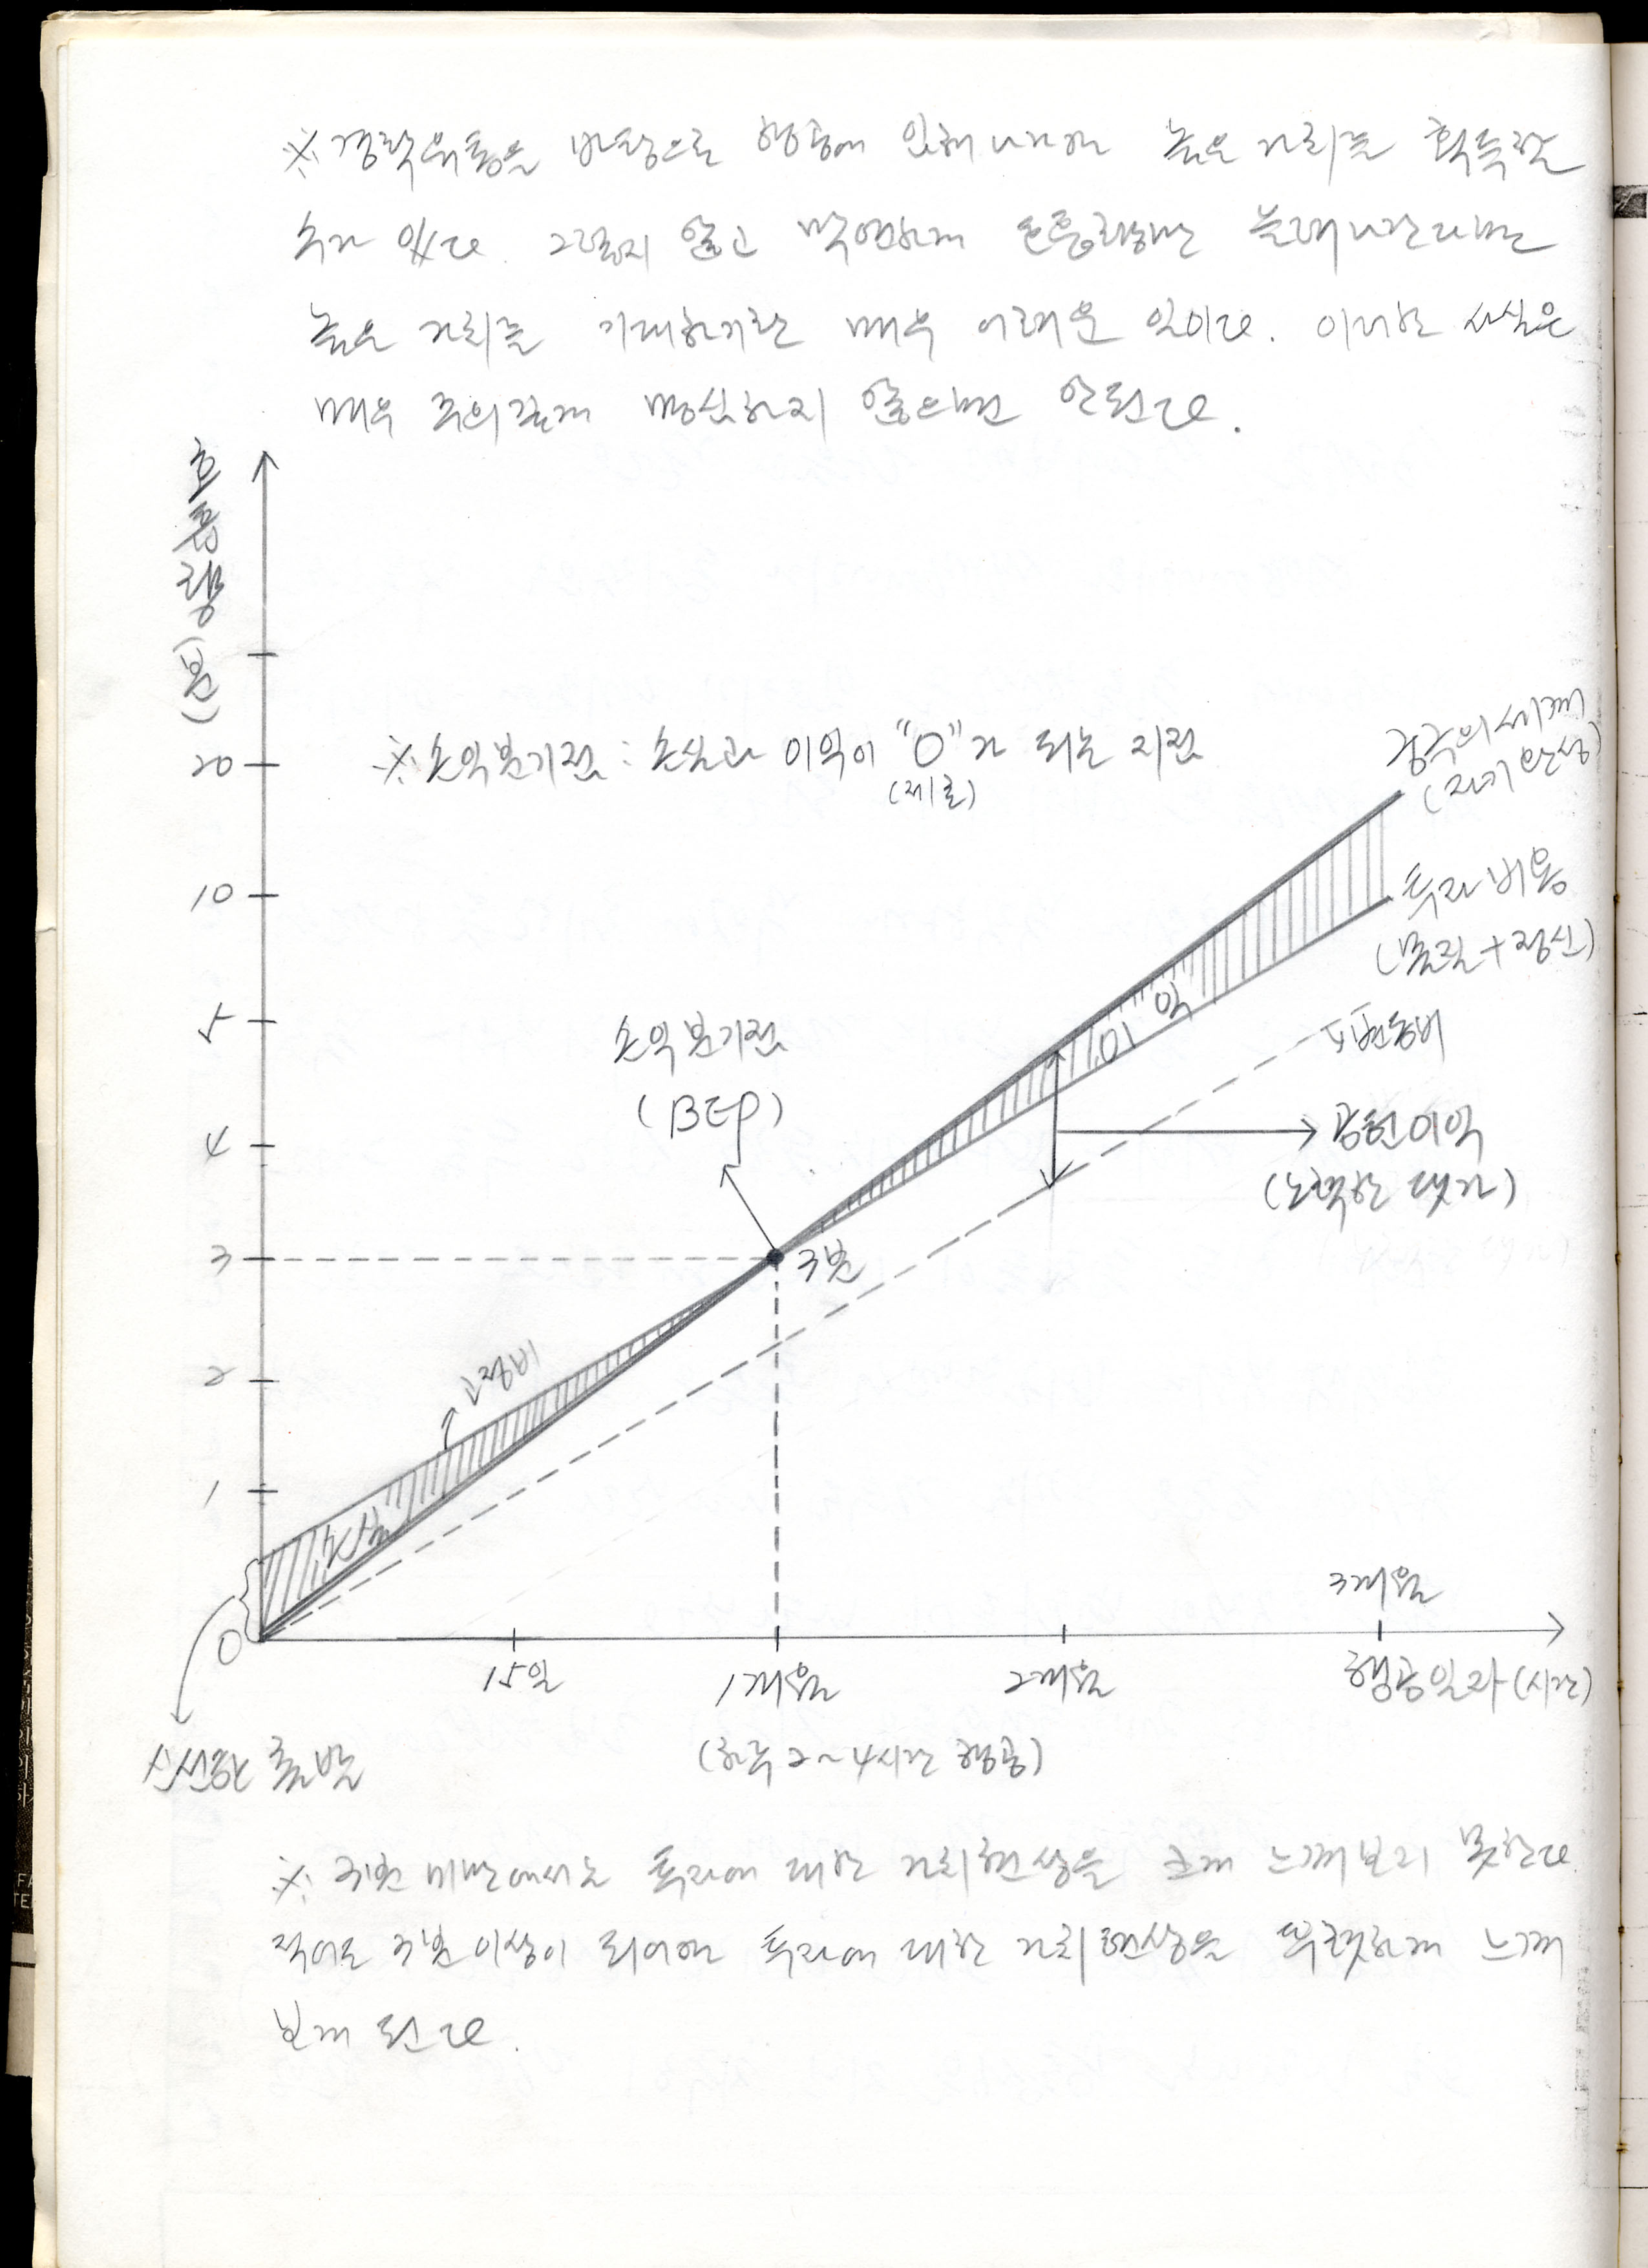 ※ 경락유통을 바탕으로 행공에 임해나가야 높은 가치를 획득할
수가 있다. 그렇지 않고 막연하게 호흡량만 늘려나간다면
높은 가치를 기대하기란 매우 어려운 일이다. 이러한 사실은
매우 주의깊게 명심하지 않으면 안된다.
호흡량 (분)
20
10
5
4
3
2
1
0
※ 손익분기점 : 손실과 이익이 "0"가 되는 지점
(제로)
공수의 세계
(자기완성)
투자 비용
(물질+정신)
변동비
이익
손익분기점
(BEP)
공헌이익
(노력한 댓가)
3분
고정비
손실
3개월
15일
1개월
2개월
행공일자 (시간)
신선한 출발
(하루 2~4시간 행공)
※ 3분 미만에서는 투자에 대한 가치현상을 크게 느껴보지 못한다.
적어도 3분 이상이 되어야 투자에 대한 가치현상을 뚜렷하게 느껴
보게 된다.